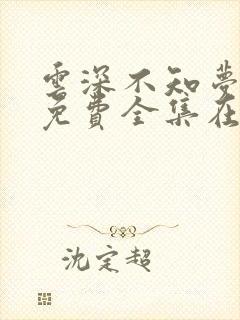 雲深不知夢
免費全集在
沈定超